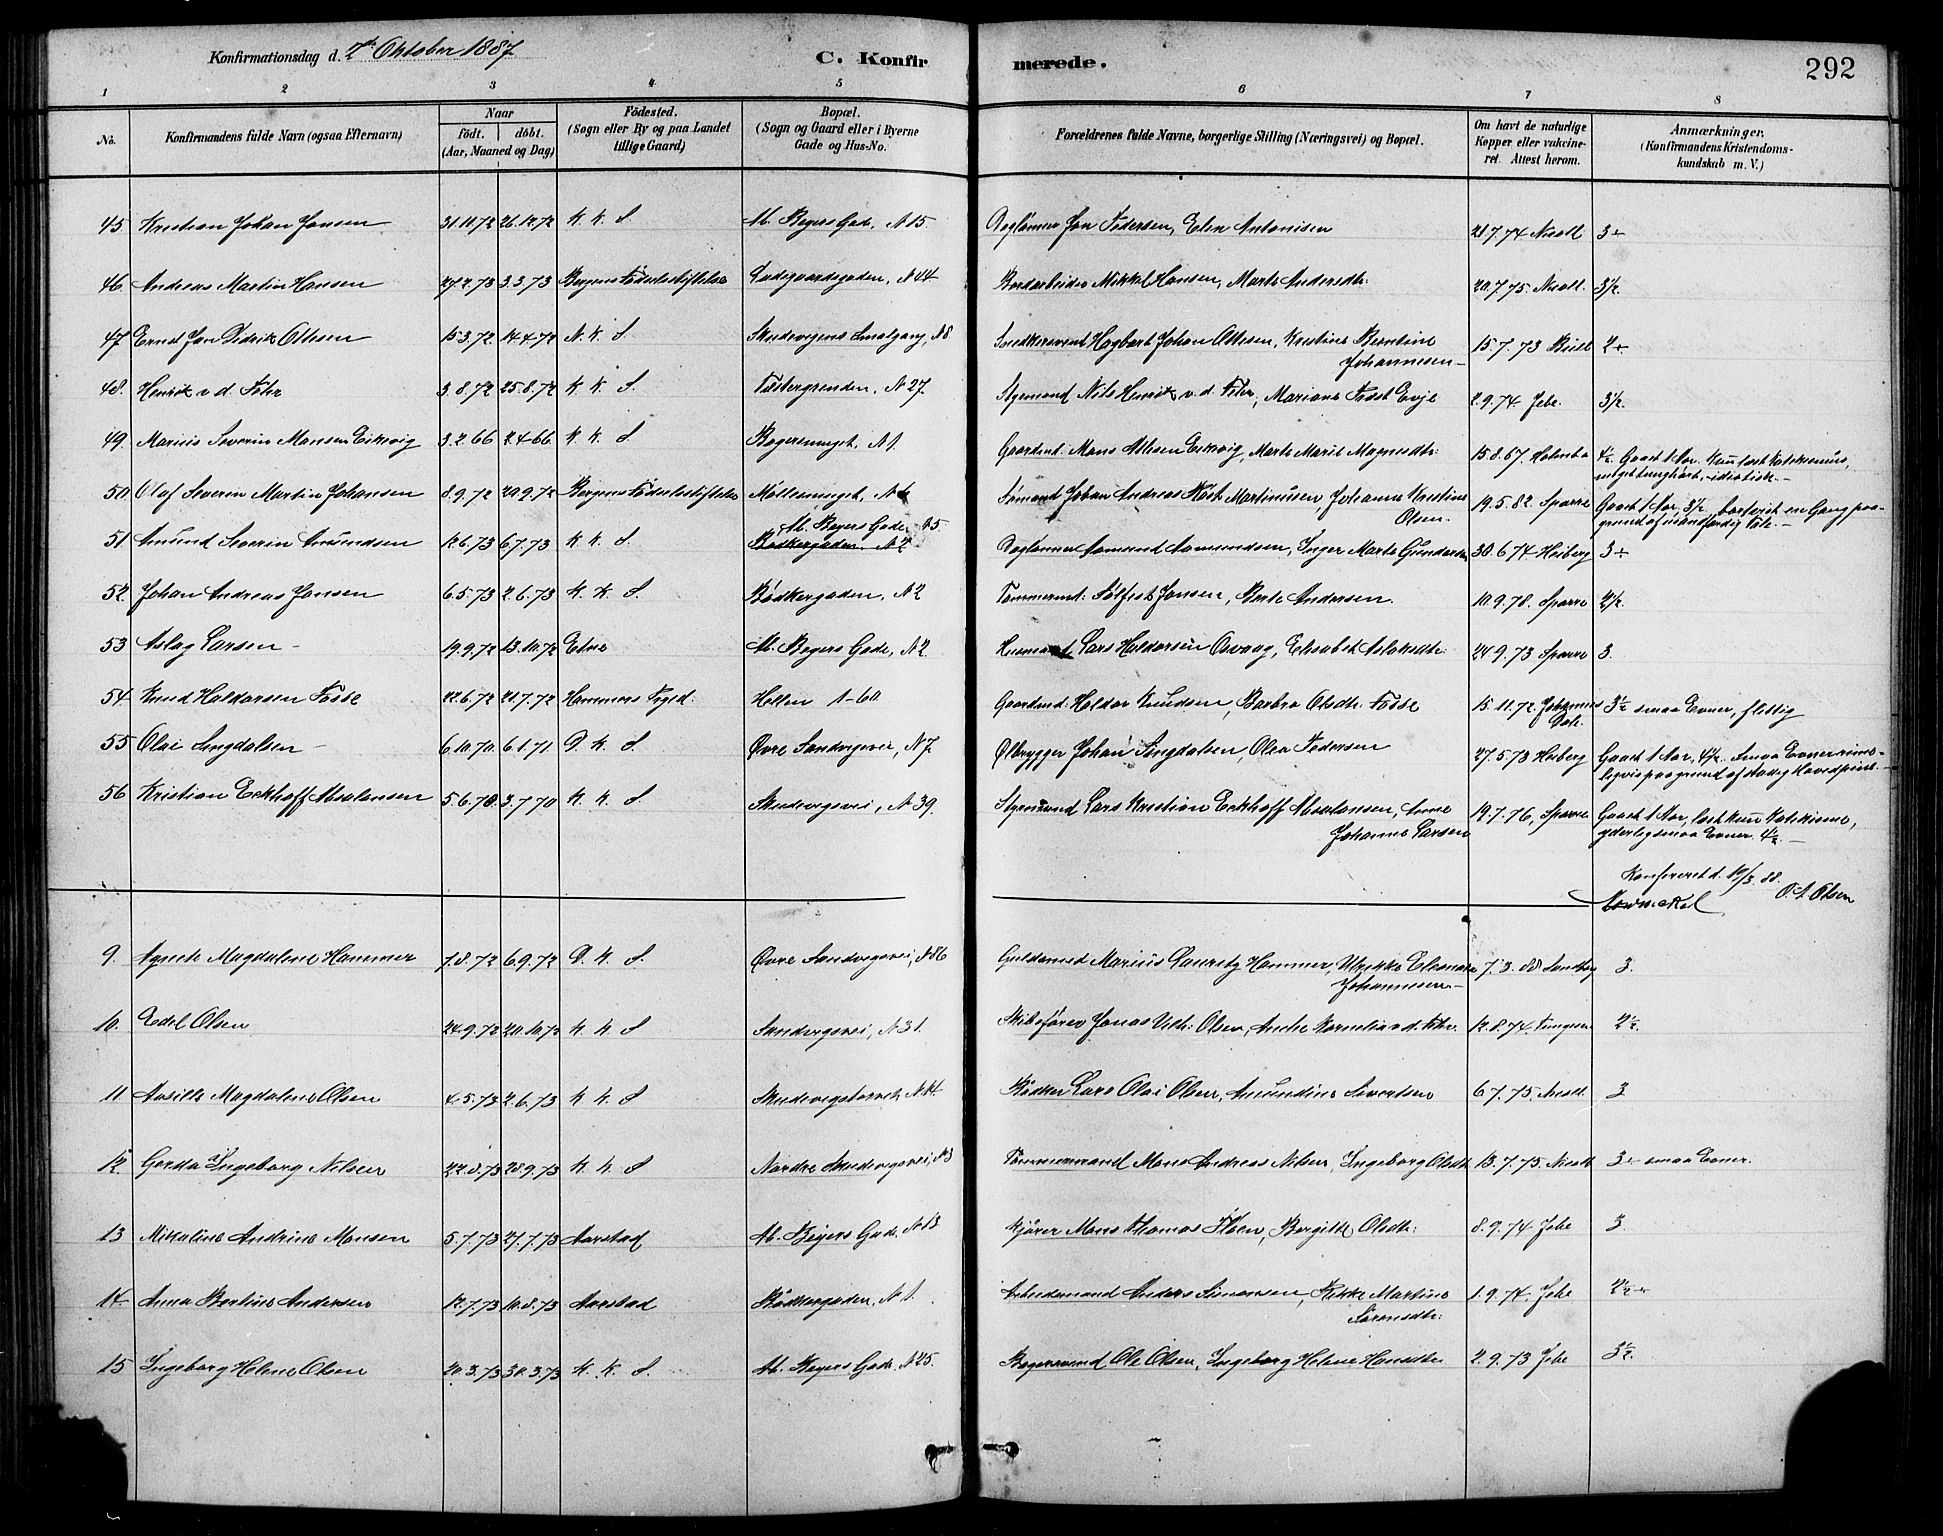 Konfirmationsdag d. 2den Oktober 1887
C. Konfir
merede.
292
1 2 3 4 5 6 7 8
No.
Konfirmandens fulde Navn (ogsaa Efternavn)
Naar
født. døbt.
(Aar, Maaned og Dag)
Födested.
(Sogn eller By og paa Landet
tillige Gaard)
Bopæl.
(Sogn og Gaard eller i Byerne
Gade og Hus-No.
Forældrenes fulde Navne, borgerlige Stilling (Næringsvei) og Bopæl.
Om havt de naturlige
Kopper eller vakcine-
ret. Attest herom.
Anmærkninger.
(Konfirmandens Kristendoms-
kundskab m. V.)
45 Kristian Johan Jansen 31.10.72 26.12.72 K. K. S. M. Beyers Gade, N 15. Daglønner Jan Pedersen, Elen Antonisen 21.7.74 Neall 3÷
46. Andreas Martin Hansen 27.2.73 3.3.73 Bergens Födselsstiftelse Ladegaardsgaden, N 44 Bordarbeider Mikkel Hansen, Marte Andersdtr. 20.7.75. Neall. 3½.
47 Ernst Jan Didrik Olttesen 15.3.72 14.4.72 N. K. S Skudevigens Smalgang, N 8 Snedkersvend Hagbart Johan Ottesen, Kristine Berntine
Johannesen 15.7.73 2÷
48. Henrik v. d. Fehr 3.8.72 25.8.72 K. K. S. Festergrenden, N 27. Styrmand Nils Henrik v. d. Fehr, Mariane Frost Evje 2.9.74 Jebe. 3½.
49. Marius Severin Monsen Eikevig 3.2.66 2.4.66 K. K. S Bagersmuget, N 1. Gaardmd. Mons Attesen Eikevig, Marte Marit Magnesdtr. 15.8.67. Holmbo 4½ Gaaet 1 Aar. Kun læst Katekismus,
meget tunghørt, idiotisk.
50. Olaf Severin Martin Johansen 8.9.72 29.9.72 Bergens Födselsstiftelse Møllesmuget, N 6 Sømand Johan Andreas Martinusen, Johanne Kristine
Olsen. 19.5.82. Sparre Gaaet 1 Aar, 3½, bortvist en Gang paa
grund af
51. Amund Severin Amundsen 12.6.73 6.7.73 K. K. S. M. Beyers Gade, N 5
Bødkergaden, N 2 Daglønner Aamund Aamundsen, Inger Marta Gundersdtr. 30.6.74 Heiberg 3÷
52. Johan Andreas Jansen 6.5.73 2.6.73 K. K. S. Bødkergaden, N 2 Tømmermd. Sølfest Jansen, Berte Andersen. 10.9.78. Sparre 2½.
53 Aslag Larsen 19.9.72 13.10.72 Etne M. Beyers Gade, N 2 Husmand Lars Haldorsen Osvaag, Elisabet Aslaksdtr. 24.9.73 Sparre 3.
54. Knud Haldorsen Fosse 22.6.72 21.7.72 Hammers Prgjd. Hellen 1-60. Gaardmd. Haldor Knudsen, Barbro Olsdtr. Fosse 15.11.72 Johannes
Dale. 3½ smaa Evner, flittig
55 Olai Lingdalsen 6.10.70. 6.1.71. D. K. S. Øvre Sandvigsvei, N 7. Ølbrygger Johan Lingdalsen, Olea Pedersen 27.5.73 Heiberg Gaaet 1 Aar, 4½. Smaa Evner rime-
ligvis paa grund af stadig Hovedpine.
56 Kristian Eckhoff Absalonsen 5.6.70. 3.7.70 K. K. S. Skudevigsvei, N 39. Styrmand Lars Kristian Eckhoff Absalonsen, Anne
Johanne Larsen 19.7.76, Sparre Gaaet 1 Aar, læst kun Katekisme,
yderlig smaa Evner. 4½.
Konfereret d. 10/3. 88.
Mowinckel O. A. Olsen
9. Agnete Magdalene Hammer 7.8.72 6.9.72 D. K. S. Øvre Sandvigsvei, N 86 Guldsmed Marius Lauritz Hammer, Ulrikke Eleonore
Johannesen 7.3.88 Sandberg 3.
10. Edel Olsen 24.9.72 20.10.72 K. K. S Sandvigsvei, N 31. Skibsfører Jonas Vilh. Olsen, Andrea Kornelia v. d. Fehr 12.8.74. 2½.
11. Aasille Magdalene Olsen 4.5.73 2.6.73 K. K. S Skudevigstorvet, N 14. Bødker Lars Olai Olsen, Amundine Sivertsen 6.7.75. Neall. 3
12. Gerda Ingeborg Nilsen 22.8.73 28.9.73 K. K. S Nordre Skudevigsvei, N 3 Tømmermand Mons Andreas Nilsen, Ingeborg Olsdtr. 13.7.75. Neall 3÷ smaa Evner.
13 Mikaline Andrine Monsen 5.7.73 27.7.73 Aarstad M. Beyers Gade, N 13 Kjører Mons Thomas Ibsen, Bergitte Olsdtr. 8.9.74 Jebe 3.
14 Anna Bertine Andersen 12.7.73 10.8.73 Aarstad Bødkergaden, N 1. Arbeidsmand Anders Simonsen, Rikke Martine
Sørensdtr. 1.9.74, Jebe 2½÷
15 Ingeborg Helene Olsen 20.3.73 30.3.73 K. K. S. M. Beyers Gade, N 25. Bagersvend Ole Olsen, Ingeborg Helene Hansdtr. 2.9.73 Jebe 3½.